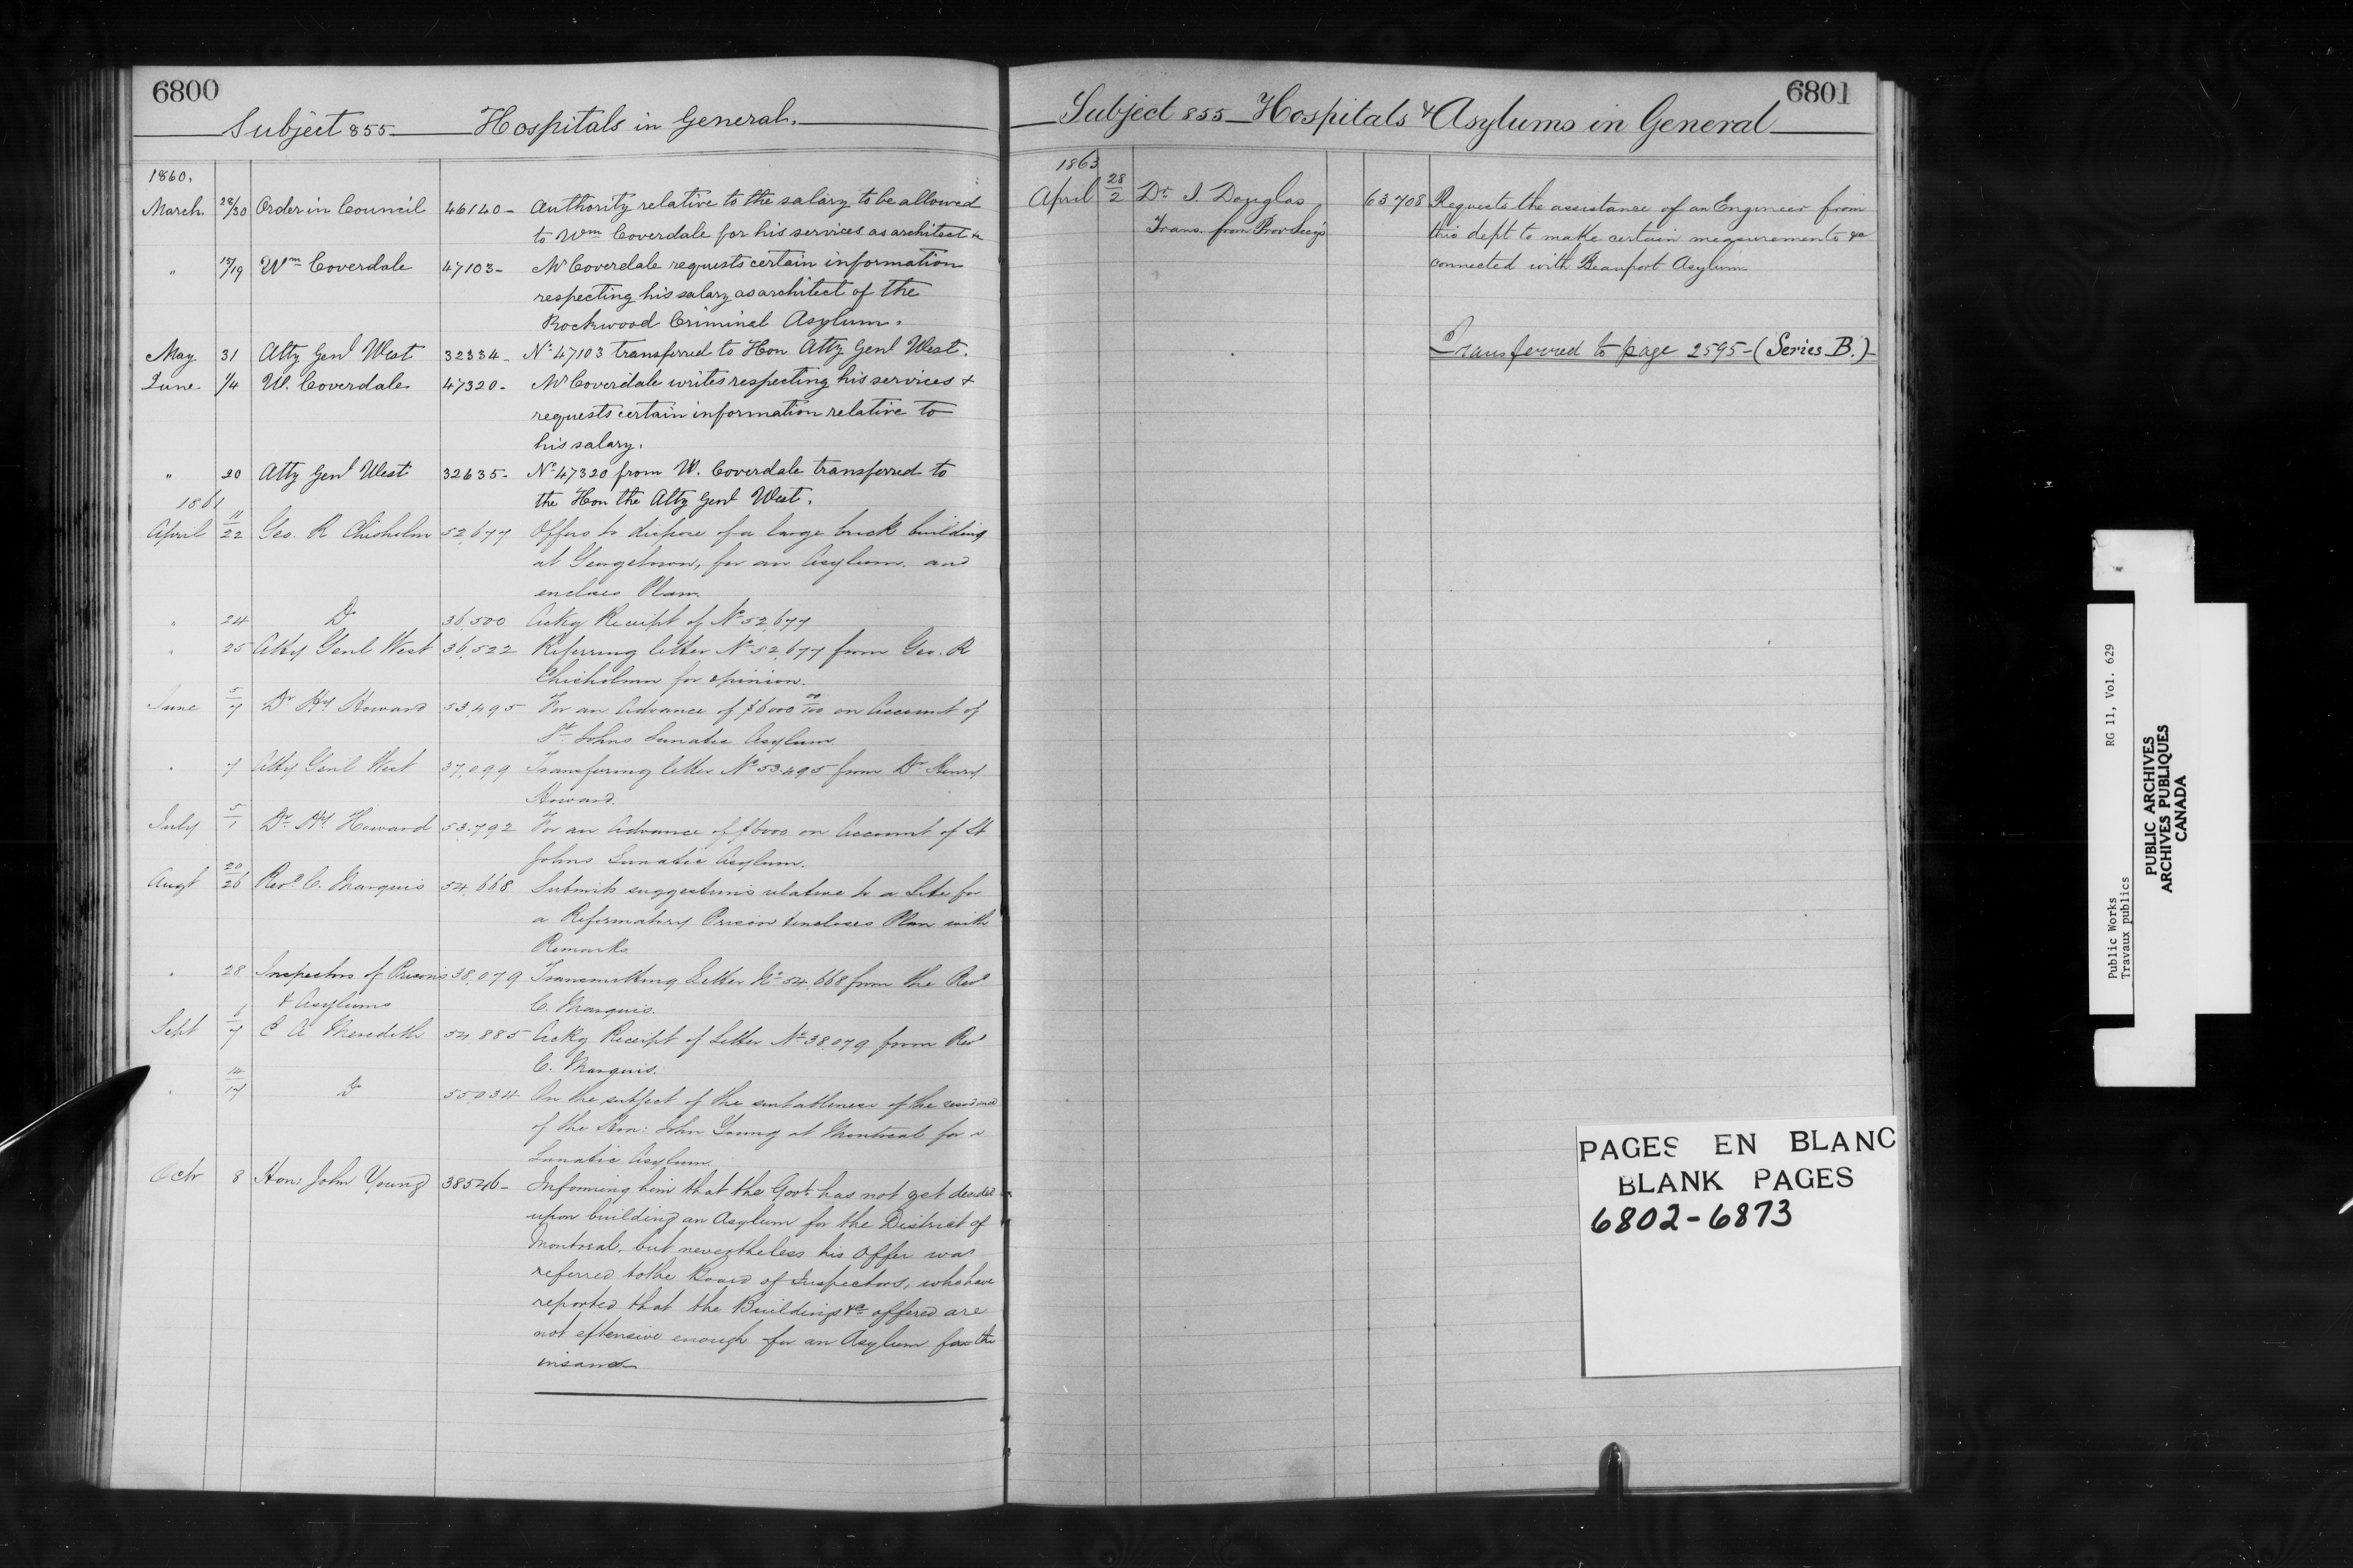 6800
Subject 855 Hospitals in General.
1860.
March. 28/30 Order in Council 46140 - Authority relative to the salary to be allowed
to Wm Coverdale for his services as architect &c
" 18/19 Wm Coverdale 47103 - Mr Coverdale requests certain information
respecting his salary as architect of the
Rockwood Criminal Asylum.
May 31 Atty Genl West 32334 - No 47103 transferred to Hon Atty Genl West.
June 1/4 W. Coverdale 47320 - Mr Coverdale writes respecting his services &
requests certain information relative to
his salary.
" 20 Atty Genl West 32635 - No 47320 from W. Coverdale transferred to
the Hon the Atty Genl West.
1861
April 11/22 Geo. R Chisholm 52,677 Offers to dispose of a large brick building
at Georgetown, for an Asylum. and
encloses Plan.
" 24 Do 36,500 Ackg Receipt of No 52,677
" 25 Atty Genl West 36,522 Referring letter No 52,677 from Geo. R
Chisholm for opinion.
June 5/7 Dr Hy Howard 53,495 For an Advance of $6000 00/100 on Account of
St Johns Lunatic Asylum
" 7 Atty Genl West 37,099 Transferring letter No 53.495 from Dr Henry
Howard.
July 5/1 Dr Hy Howard 53.792 For an Advance of $6000 on Account of St
Johns Lunatic Asylum.
Augt 20/26 Revd C. Marquis 54,668 Submits suggestions relative to a Site for
a Reformatory Prison & encloses Plan with
Remarks
" 28 Inspectors of Prisons 38,079 Transmitting Letter No 54,668 from the Revd
& Asylums C. Marquis.
Sept 6/7 E A Meredith 54,885 Ackg Receipt of Letter No 38,079 from Revd
C. Marquis.
" 14/17 Do 55034 On the subject of the suitableness of the residence
of the Hon: John Young at Montreal for a
Lunatic Asylum.
Octr 8 Hon: John Young 38546 - Informing him that the Govt has not yet decided
upon building an Asylum for the District of
Montreal, but nevertheless his offer was
referred to the Board of Inspectors, who have
reported that the Buildings &c offered are
not extensive enough for an Asylum for the
insane
6801
Subject 855 Hospitals & Asylums in General
1863
April 28/2 Dr. J. Douglas 63708 Requests the assistance of an Engineer from
Trans. from Prov Secy this dept to make certain measurements &c
connected with Beauport Asylum
Transferred to page 2595 - (Series B.)
PAGES EN BLANC
BLANK PAGES
6802-6873
Public Works RG 11, Vol. 629
Travaux publics
PUBLIC ARCHIVES
ARCHIVES PUBLIQUES
CANADA